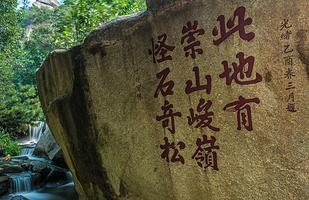 光绪乙酉春三月
此地有
崇山峻嶺
怪石奇松